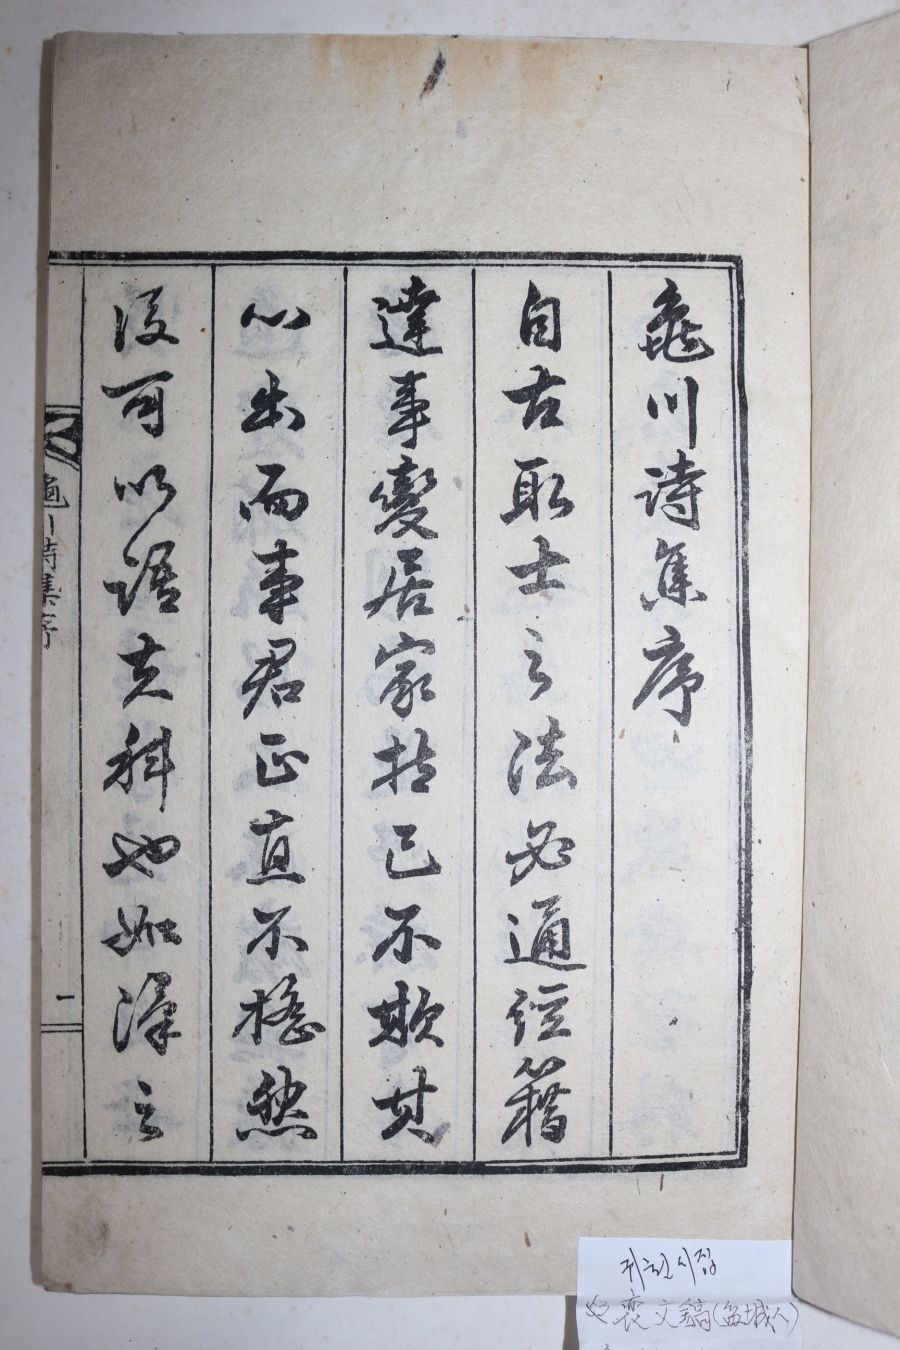 龜川詩集序
自古取士之法必通經籍
達事變居家持己不欺其
心出而事君正直不搖然
後可以語夫科也如漢之
龜川詩集序
一
귀천시집
裵文鎬(盆城人)